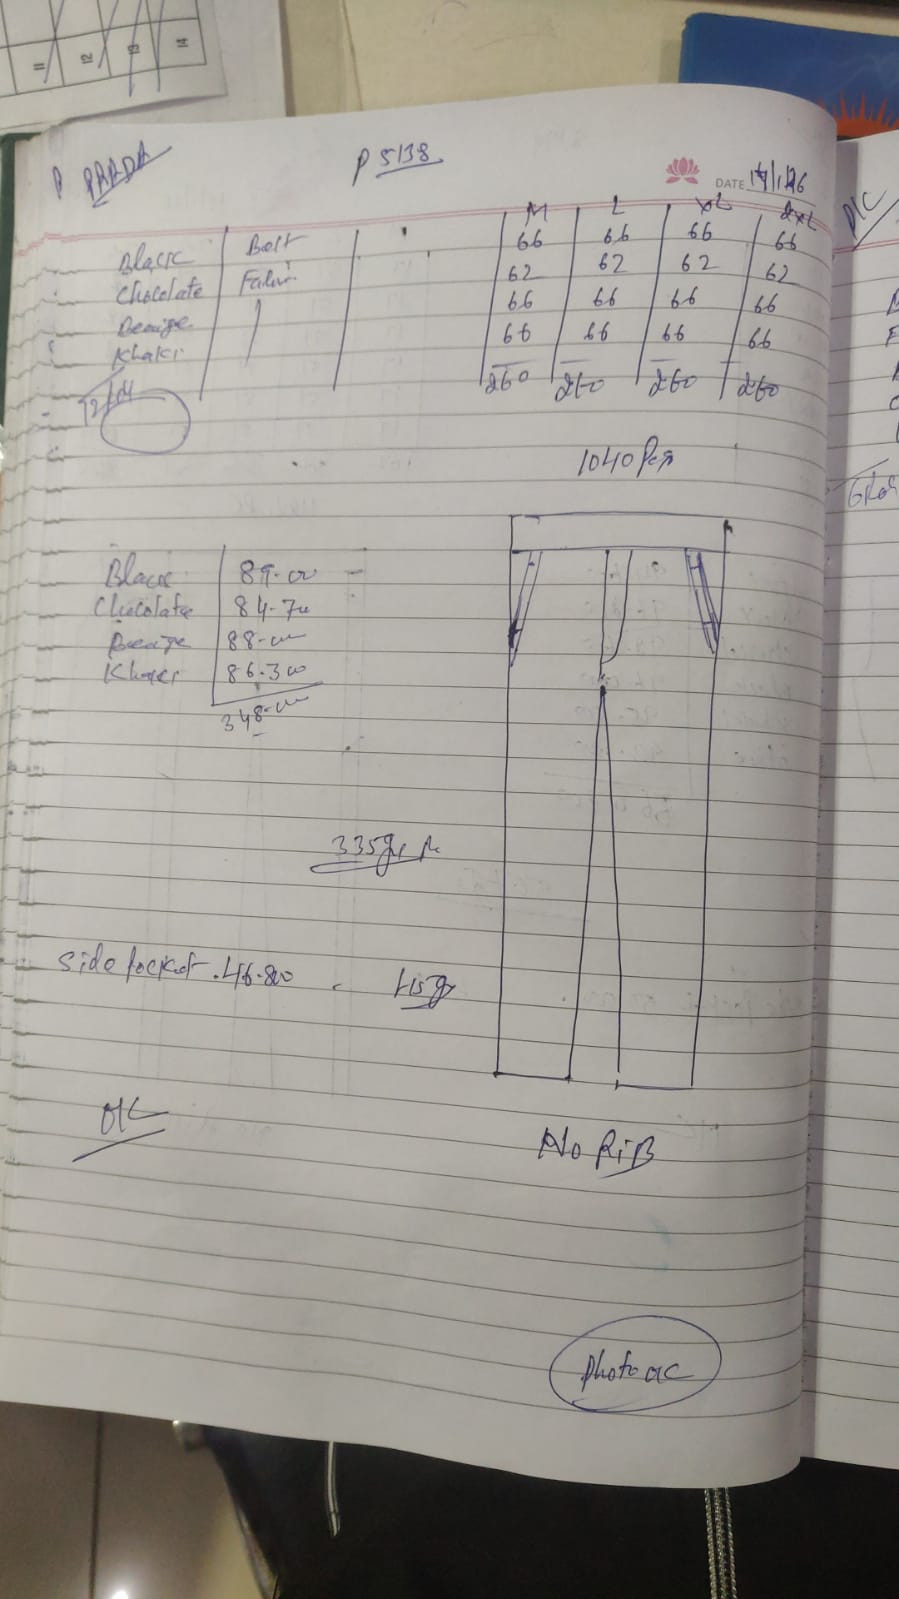 11 12 13 14
P PRADA P 5138
DATE
M L XL 2XL
Black Bolt 66 66 66 66
Chocolate 62 62 62 62
Beaige 66 66 66 66
Khaki 66 66 66 66
260 260 260 260
1040 Pcs
Black 89-00
Chocolate 84-700
Beaige 88-00
Khaki 86-300
348-00
335gr
Side Pocket 46-800
OK
NO RiB
Photo OK